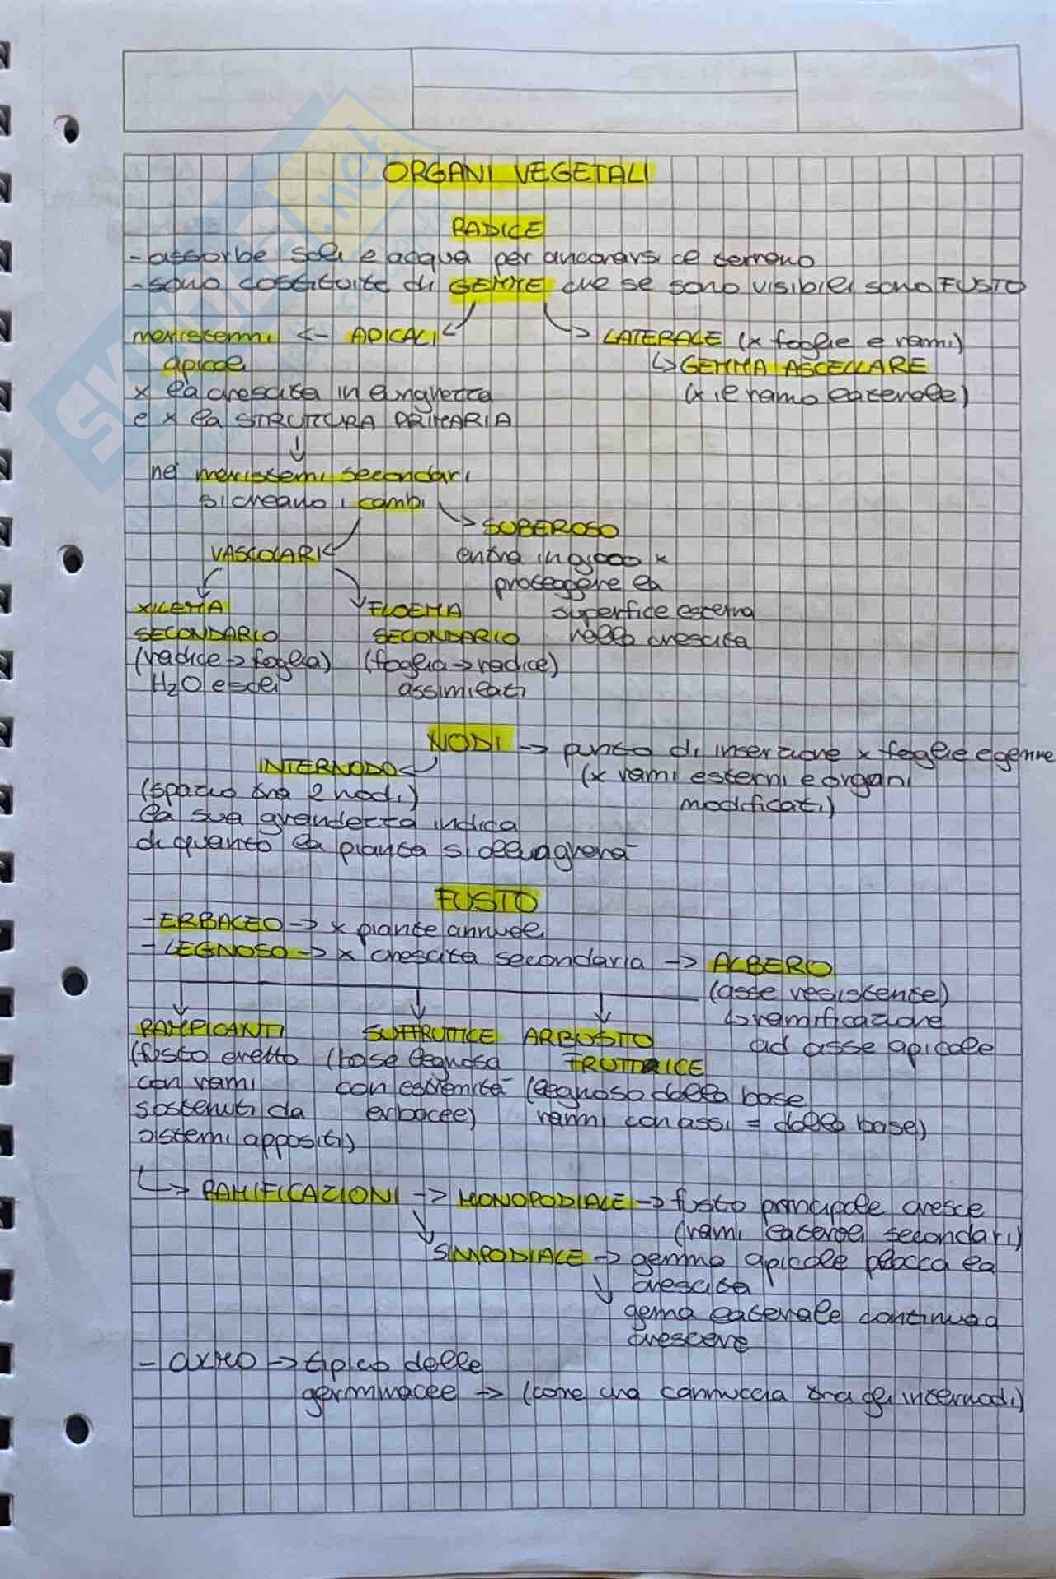 ORGANI VEGETALI
RADICE
- assorbe sali e acqua per ancorarsi al terreno
- sono costituite di GEMME che se sono visibili sono FUSTO
meristemi <- APICALI
-> LATERALE (x foglie e rami)
apicale
↳ GEMMA ASCELLARE
x la crescita in lunghezza
(x il ramo laterale)
e x la STRUTTURA PRIMARIA
nei meristemi secondari
si creano i cambi
-> SUBEROSO
VASCOLARI
entra in gioco x
proteggere la
XILEMA
FLOEMA
superfice esterna
SECONDARIO
SECONDARIO
nella crescita
(radice -> foglia)
(foglia -> radice)
H2O e sali
assimilati
NODI -> punto di inserzione x foglie e gemme
INTERNODO
(x rami esterni e organi
(spazio tra 2 nodi)
modificati)
la sua grandezza indica
di quanto la pianta si allungherà
FUSTO
- ERBACEO -> x piante annuali
- LEGNOSO -> x crescita secondaria -> ALBERO
(asse resistente)
↳ ramificazione
RAMPICANTI
SUFFRUTICE
ARBUSTO
ad asse apicale
(fusto eretto
(base legnosa
con rami
con estremità
(legnoso dalla base
sostenuti da
erbacee)
rami con assi = dalla base)
sistemi appositi)
↳ RAMIFICAZIONI -> MONOPODIALE -> fusto principale cresce
(rami laterali secondari)
SIMPODIALE -> gemma apicale blocca la
crescita
gema laterale continua a
crescere
- cavo -> tipico delle
-> (come una cannuccia tra gli internodi)